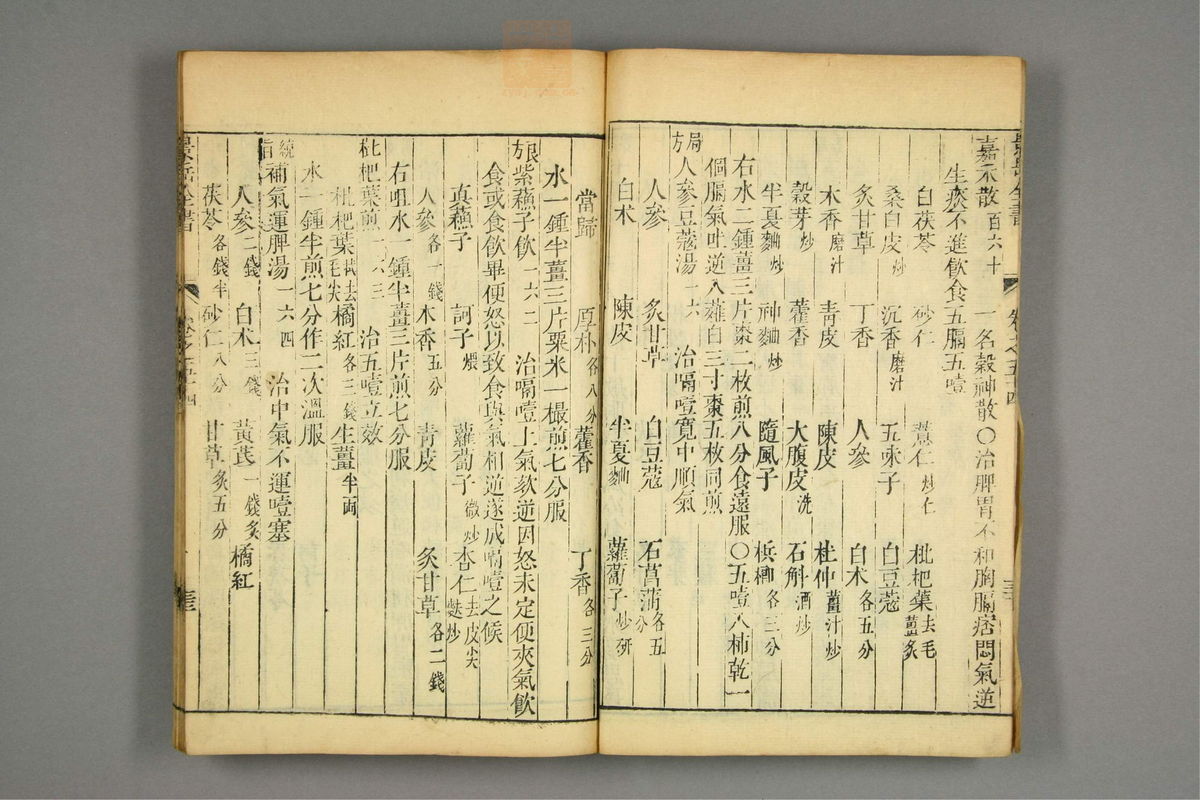 嘉禾散百六十 一名穀神散〇治脾胃不和胸膈痞悶氣逆
生痰不進飲食五膈五噎
白茯苓 砂仁 薏仁炒 枇杷葉去毛薑炙
桑白皮炒 沉香磨汁 五味子 白豆蔻
炙甘草 丁香 人參 白朮各五分
木香磨汁 青皮 陳皮 杜仲薑汁炒
穀芽炒 藿香 大腹皮洗 石斛酒炒
半夏麯炒 神麯炒 隨風子 檳榔各三分
右水二鍾薑三片棗二枚煎八分食遠服〇五噎入柿乾一
個膈氣吐逆入薤白三寸棗五枚同煎
局方人參豆蔻湯一六 治嗝噎寬中順氣
人參 炙甘草 白豆蔻 石菖蒲各五分
白朮 陳皮 半夏麯 蘿蔔子炒研
當歸 厚朴各八分 藿香 丁香各三分
水一鍾半薑三片粟米一撮煎七分服
良方紫蘇子飲一六二 治嗝噎上氣欬逆因怒未定便夾氣飲
食或食飲畢便怒以致食與氣相逆遂成嗝噎之候
真蘇子 訶子煨 蘿蔔子微炒 杏仁去皮尖麩炒
人參各一錢 木香五分 青皮 炙甘草各二錢
右㕮咀水一鍾半薑三片煎七分服
枇杷葉煎一六三 治五噎立效
枇杷葉拭去毛尖 橘紅各三錢 生薑半両
水二鍾半煎七分作二次溫服
統旨補氣運脾湯一六四 治中氣不運噎塞
人參二錢 白朮三錢 黃芪一錢炙 橘紅
茯苓各錢半 砂仁八分 甘草炙五分
景岳全書
卷之五十四